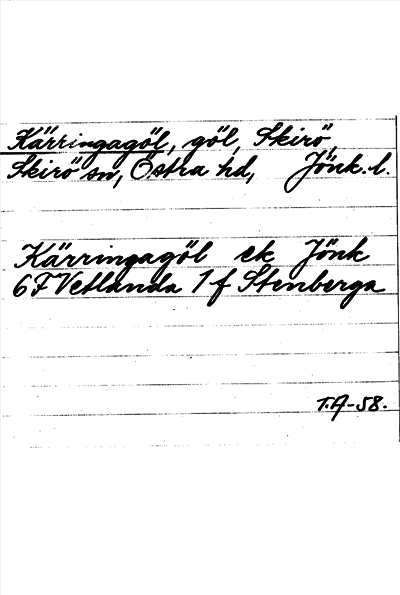 Kärringagöl, göl, Skirö,
Skirö sn, Östra hd, Jönk. l.
Kärringagöl ek Jönk
6F Vetlanda 1 f Stenberga
T.A-58.